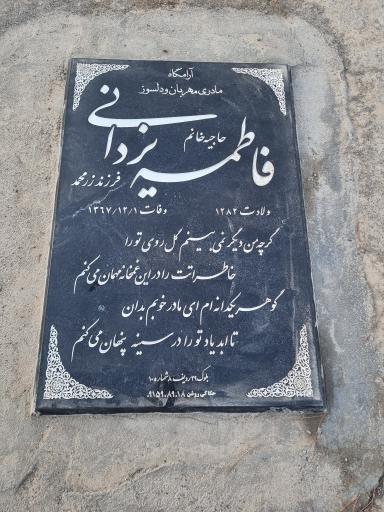 آرامگاه
مادری مهربان و دلسوز
حاجیه خانم
فاطمه یزدانی
فرزند زرمحمد
ولادت ۱۲۸۲ وفات ۱۳۶۷/۱۲/۱
گرچه من دیگر نمی بینم گل روی تو را
خاطراتت را در این غمخانه مهمان می کنم
گوهر یکدانه ام ای مادر خوبم بدان
تا ابد یاد تو را در سینه پنهان می کنم
بلوک ۲۶ ردیف ۸ شماره ۱۰
حکاکی روشن ۰۹۱۵۹۰۸۹۰۱۸